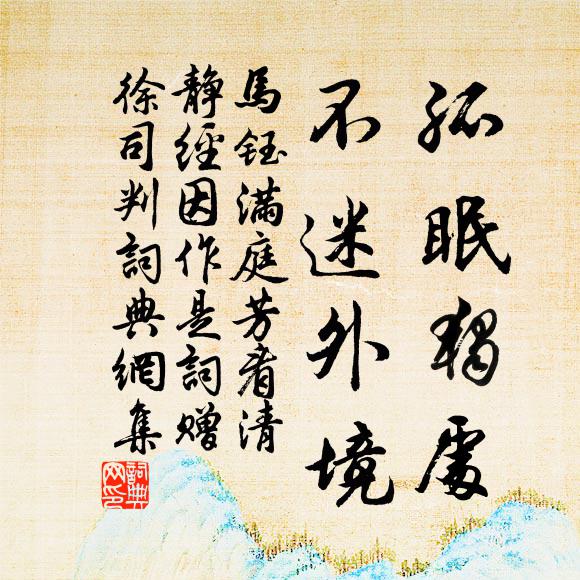 孤眠獨處
不迷外境
馬鈺滿庭芳看清
靜經因作是詞贈
徐司判詞典網集
詞典網印